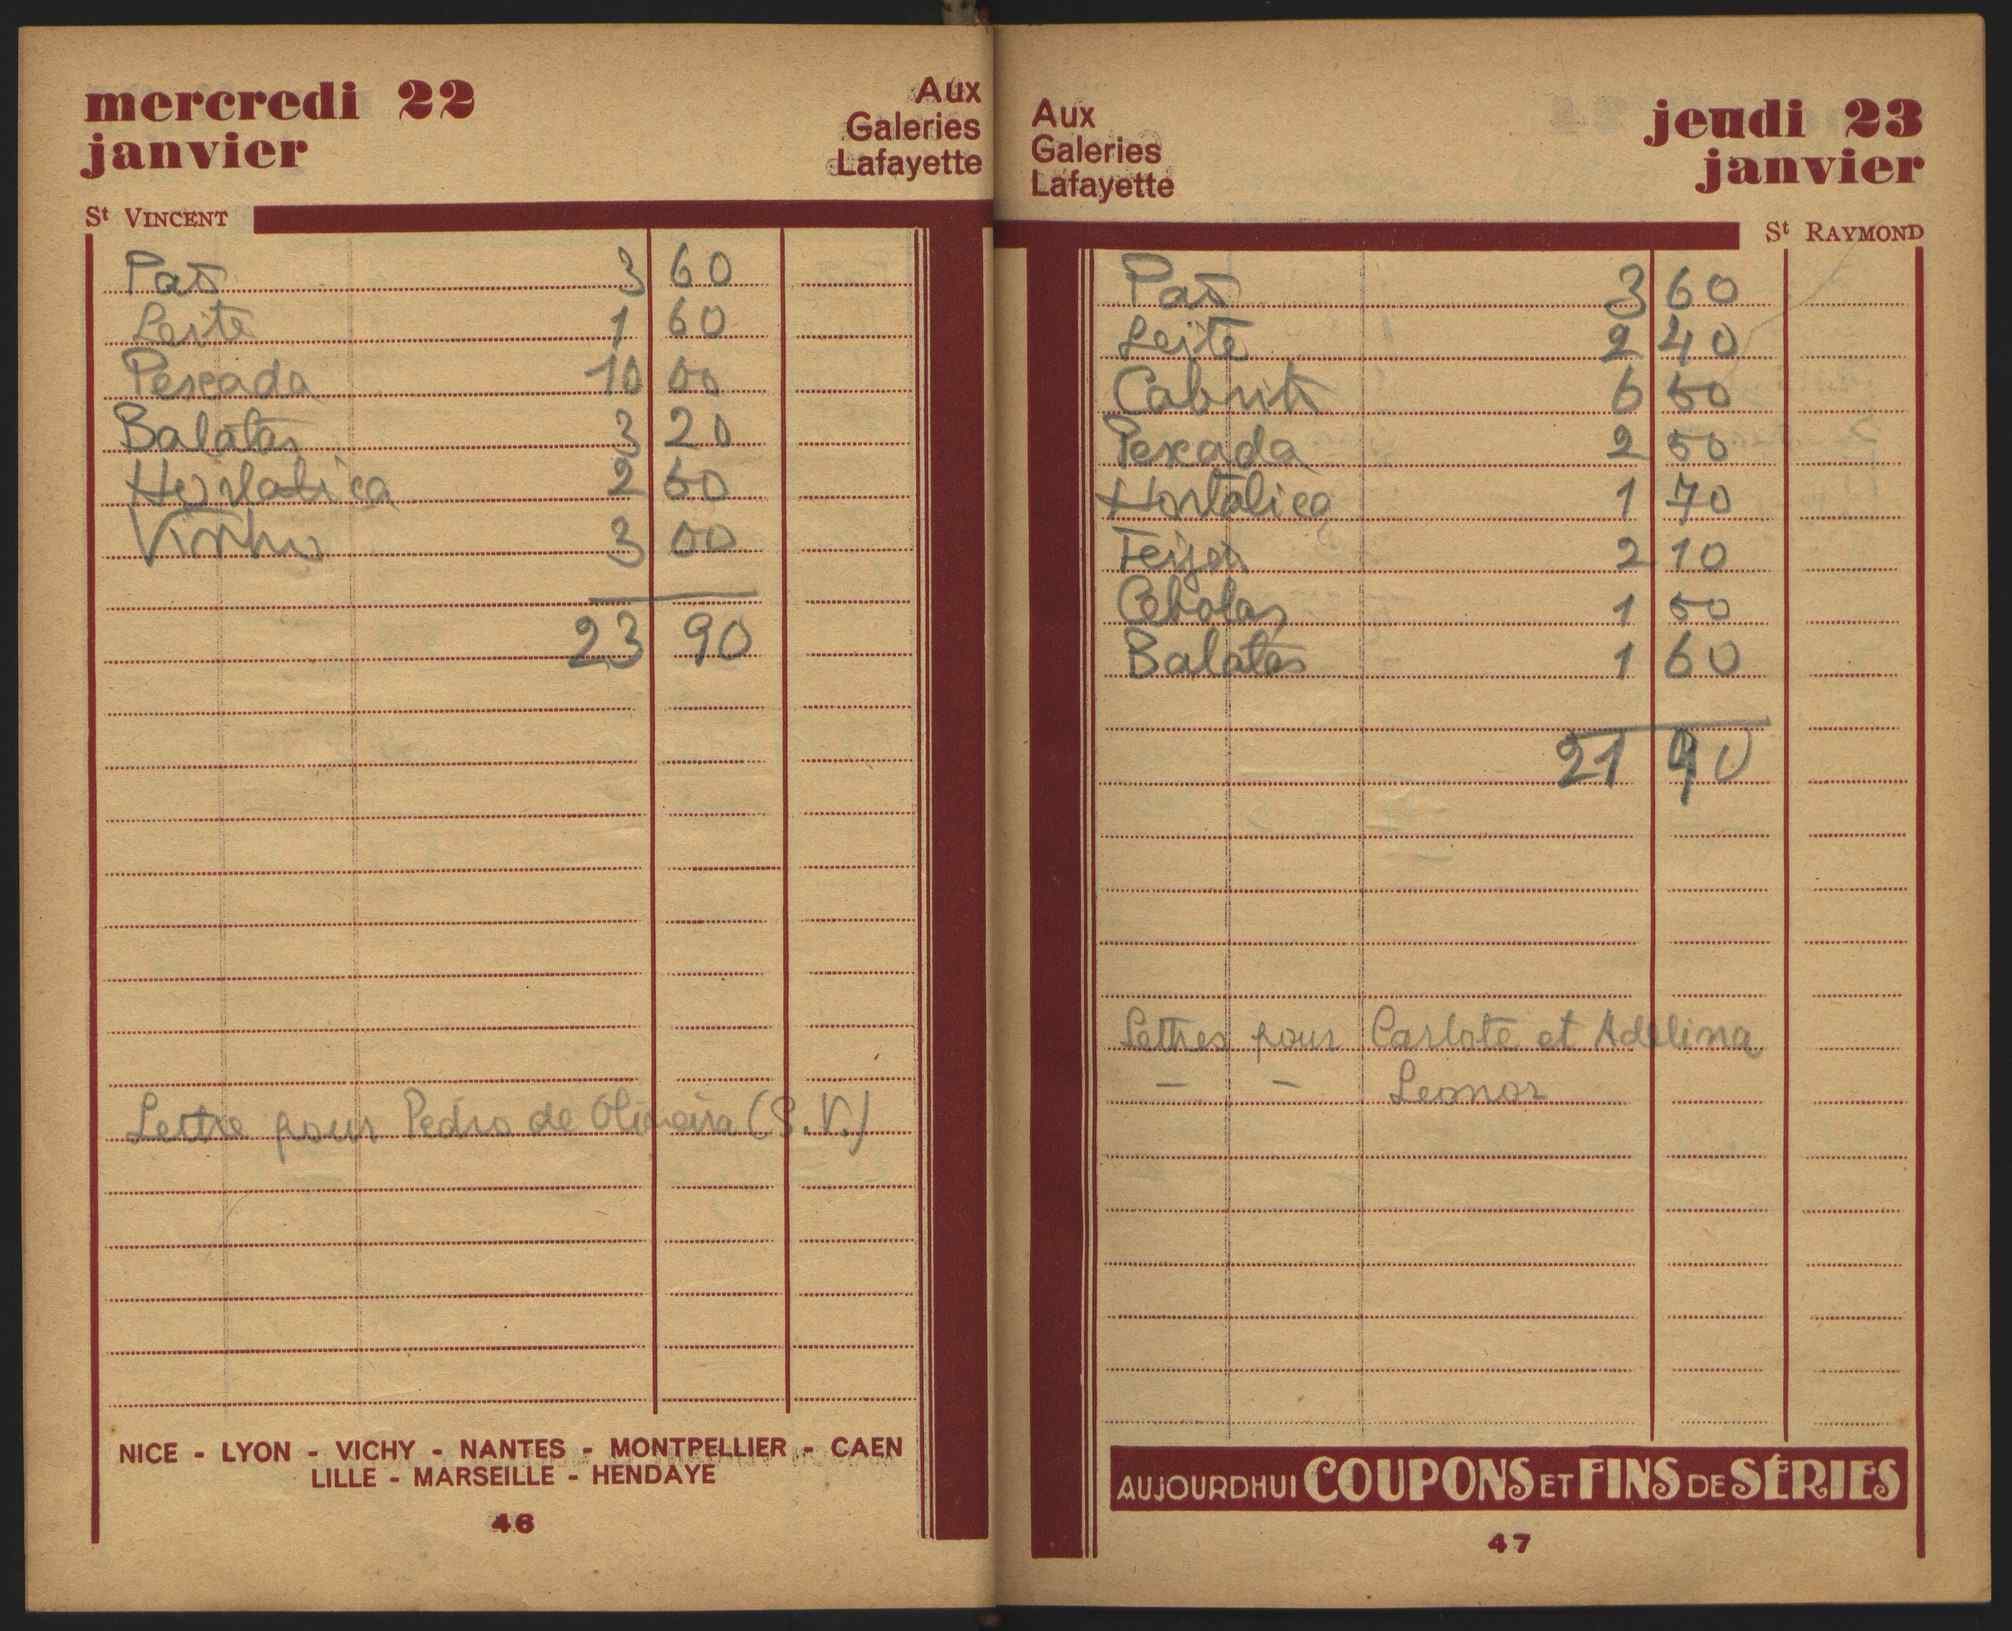 mercredi 22
janvier
Aux
Galeries
Lafayette
St VINCENT
Pão 3 60
Leite 1 60
Pescada 10 00
Batatas 3 20
Hortaliça 2 50
Vinho 3 00
23 90
Lettre pour Pedro de Oliveira (S.V.)
NICE - LYON - VICHY - NANTES - MONTPELLIER - CAEN
LILLE - MARSEILLE - HENDAYE
46
Aux
Galeries
Lafayette
jeudi 23
janvier
St RAYMOND
Pão 3 60
Leite 2 40
Cabrito 6 50
Pescada 2 50
Hortaliça 1 70
Feijão 2 10
Cebolas 1 50
Batatas 1 60
21 90
Lettres pour Carlote et Adelina
— — Leonor
AUJOURDHUI COUPONS ET FINS DE SÉRIES
47